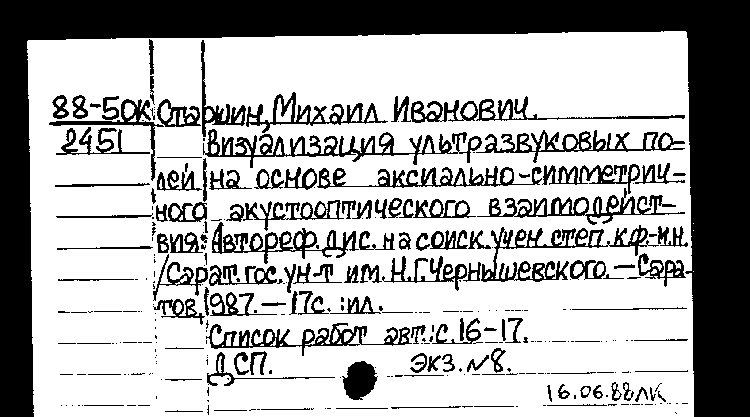 88-50К Старшин, Михаил Иванович.
2451 Визуализация ультразвуковых по-
лей на основе аксиально-симметрич-
ного акустооптического взаимодейст-
вия: Автореф. дис. на соиск. учен. степ. к.ф.-м.н.
/Сарат. гос. ун-т им. Н.Г. Чернышевского. — Сара-
тов, 1987. — 17с. : ил.
Список работ авт.: с. 16-17.
ДСП. Экз. №8.
16.06.88 ЛК